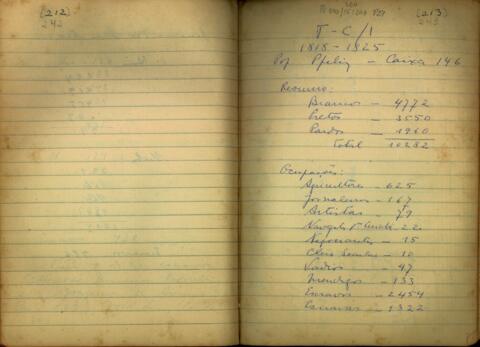 (212)
242
(213)
243
T-C/1
1818-1825
Pop. - Caixa 146
Resumo:
Brancos - 4772
Pretos - 3550
Pardos - 1960
Total 10282
Ocupações:
Agricultores - 625
Jornaleiros - 167
Artistas - 79
Negociantes - 15
Vadios - 47
Mendigos - 133
Escravos - 2454